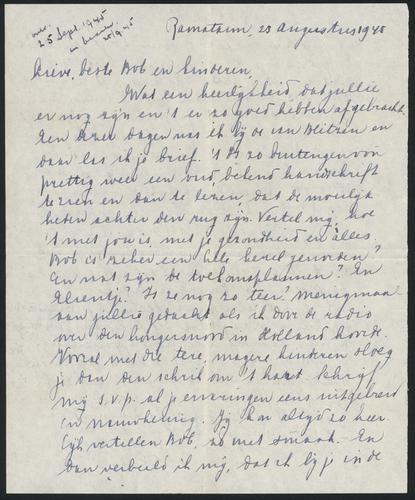 25 Sept. 1945
Ramataim, 23 Augustus 1945
Lieve, beste Bob en kinderen,
Wat een heerlijkheid, dat jullie
er nog zijn en 't er zo goed hebben afgebracht.
Een dezer dagen was ik bij de van Blitzen en
daar las ik je brief. 't Is zo buitengewoon
prettig weer een oud, bekend handschrift
te zien en dan te lezen, dat de moeilijk
heden achter den rug zijn. Vertel mij, hoe
't met jou is, met je gezondheid en alles
Bob is zeker een hele kerel geworden?
En wat zijn de toekomstplannen? En
Is ze nog zo teer? Menigmaal
aan jullie gedacht als ik door de radio
over den hongersnood in Holland hoorde.
Vooral met die tere, magere kinderen sloeg
je dan den schrik om 't hart. Schrijf
mij s.v.p. al je ervaringen eens uitgebreid
en nauwkeurig. Jij kon altijd zo heer
lijk vertellen Bob, zo met smaak. En
dan verbeeld ik mij, dat ik bij je in de